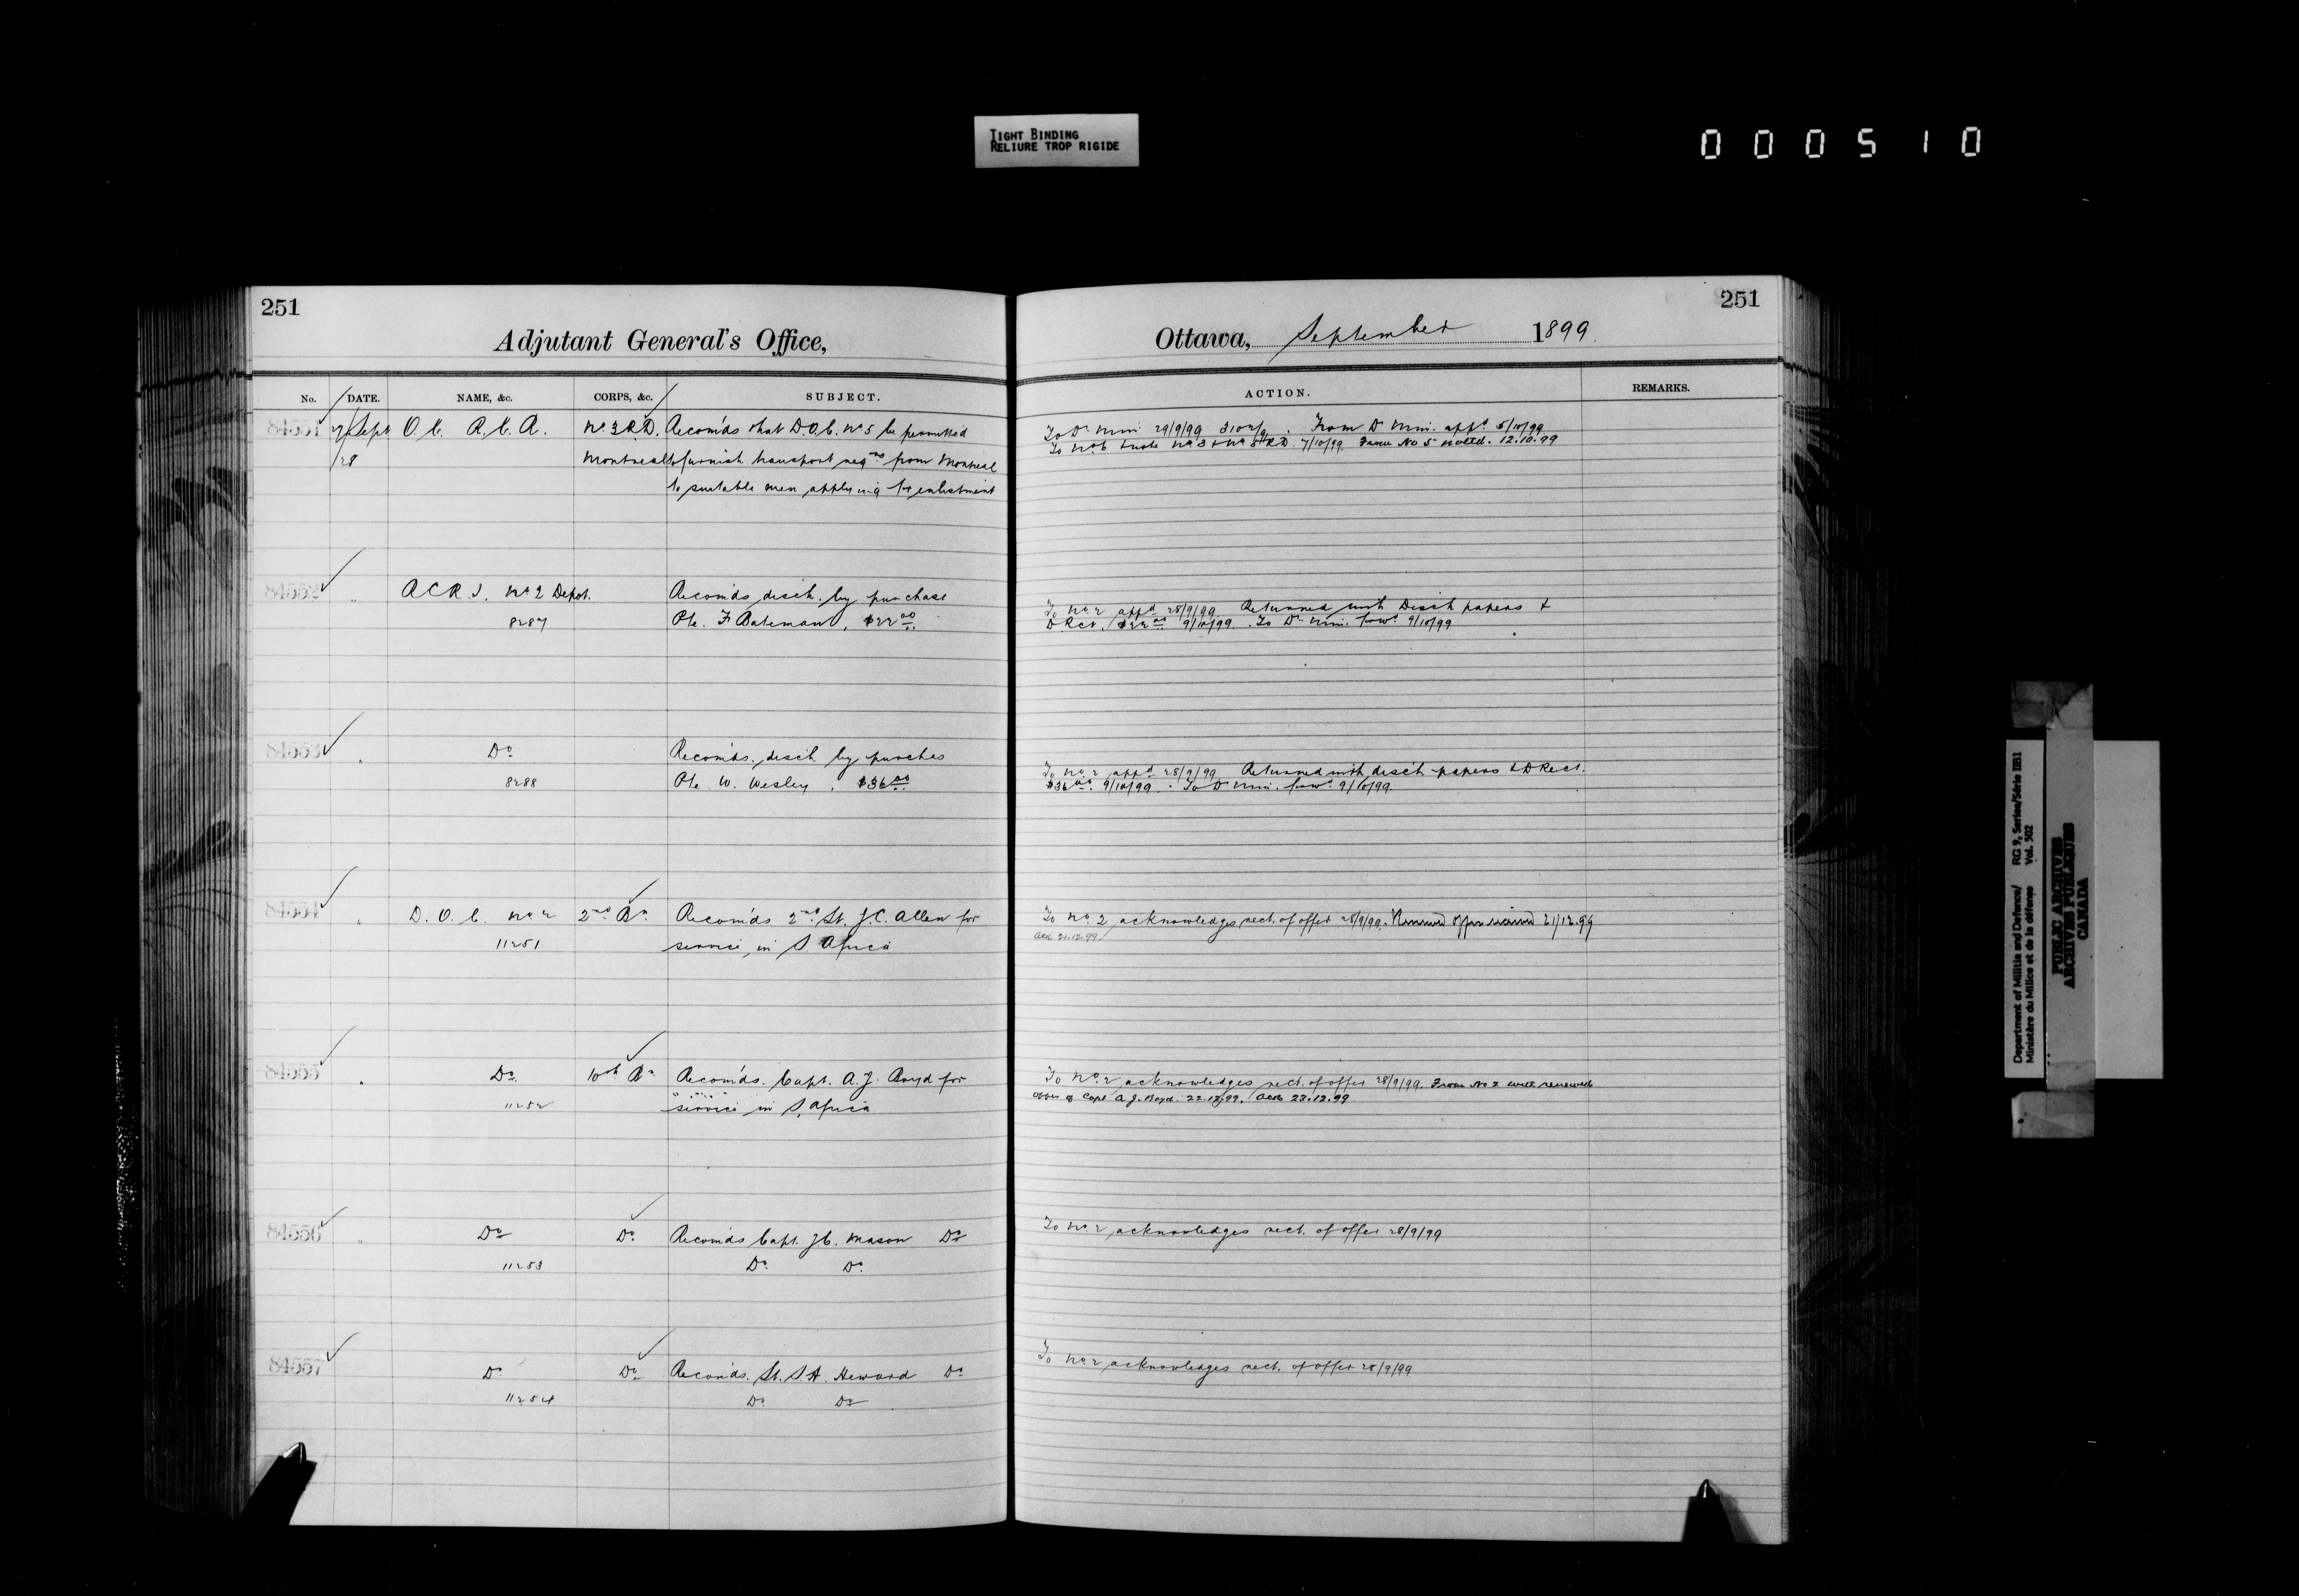 TIGHT BINDING
RELIURE TROP RIGIDE
000510
251
Adjutant General's Office,
No. DATE. NAME, &c. CORPS, &c. SUBJECT.
84551 Sept O.C. R.C.A. No 3 R.D. Recom'ds that D.O.C. No 5 be permitted
/28 Montreal to furnish transport reqns from Montreal
to suitable men applying for enlistment
84552 " R.C.R.I. No 2 Depot. Recom'ds disch. by purchase
8287 Pte. F Bateman, $22 00
84553 " Do Recom'ds. disch. by purches
8288 Pte. W. Wesley, $36 00
84554 " D.O.C. No 2 2nd Bn Recom'ds 2nd Lt. J.C. Allen for
11251 service in S Africa
84555 " Do 10th Bn Recom'ds. Capt. A.J. Boyd for
11252 service in S. Africa
84556 " Do Do Recom'ds Capt. J.C. Mason Do
11253 Do Do
84557 Do Do Recom'ds. Lt. S.A. Heward Do
11254 Do Do
251
Ottawa, September 1899
ACTION. REMARKS.
To Dr Min 29/9/99. From Dr Min. appd 5/10/99
To No 6 & note No 3 & No 5 R.D. 7/10/99. From No 5 noted. 12.10.99
To No 2 appd 28/9/99. Returned with Disch papers &
D Rct. $22 00 9/10/99. To Dr Min. forwd 9/10/99
To No 2 appd 28/9/99 Returned with disch papers & D Rect.
$36 00. 9/10/99. To Dr Min. forwd 9/10/99
To No 2 acknowledges rect. of offer 28/9/99. Renewed offer received 21/12.99
Ack. 21.12.99
To No 2 acknowledges rect. of offer 28/9/99. From No 2 with renewed
offer of Capt A.J. Boyd. 22.12.99. Ack 23.12.99
To No 2 acknowledges rect. of offer 28/9/99
To No 2 acknowledges rect. of offer 28/9/99
Department of Militia and Defence/ RG 9, Series/Série IIB1
Ministère du Milice et de la défense Vol. 502
PUBLIC ARCHIVES
ARCHIVES PUBLIQUES
CANADA